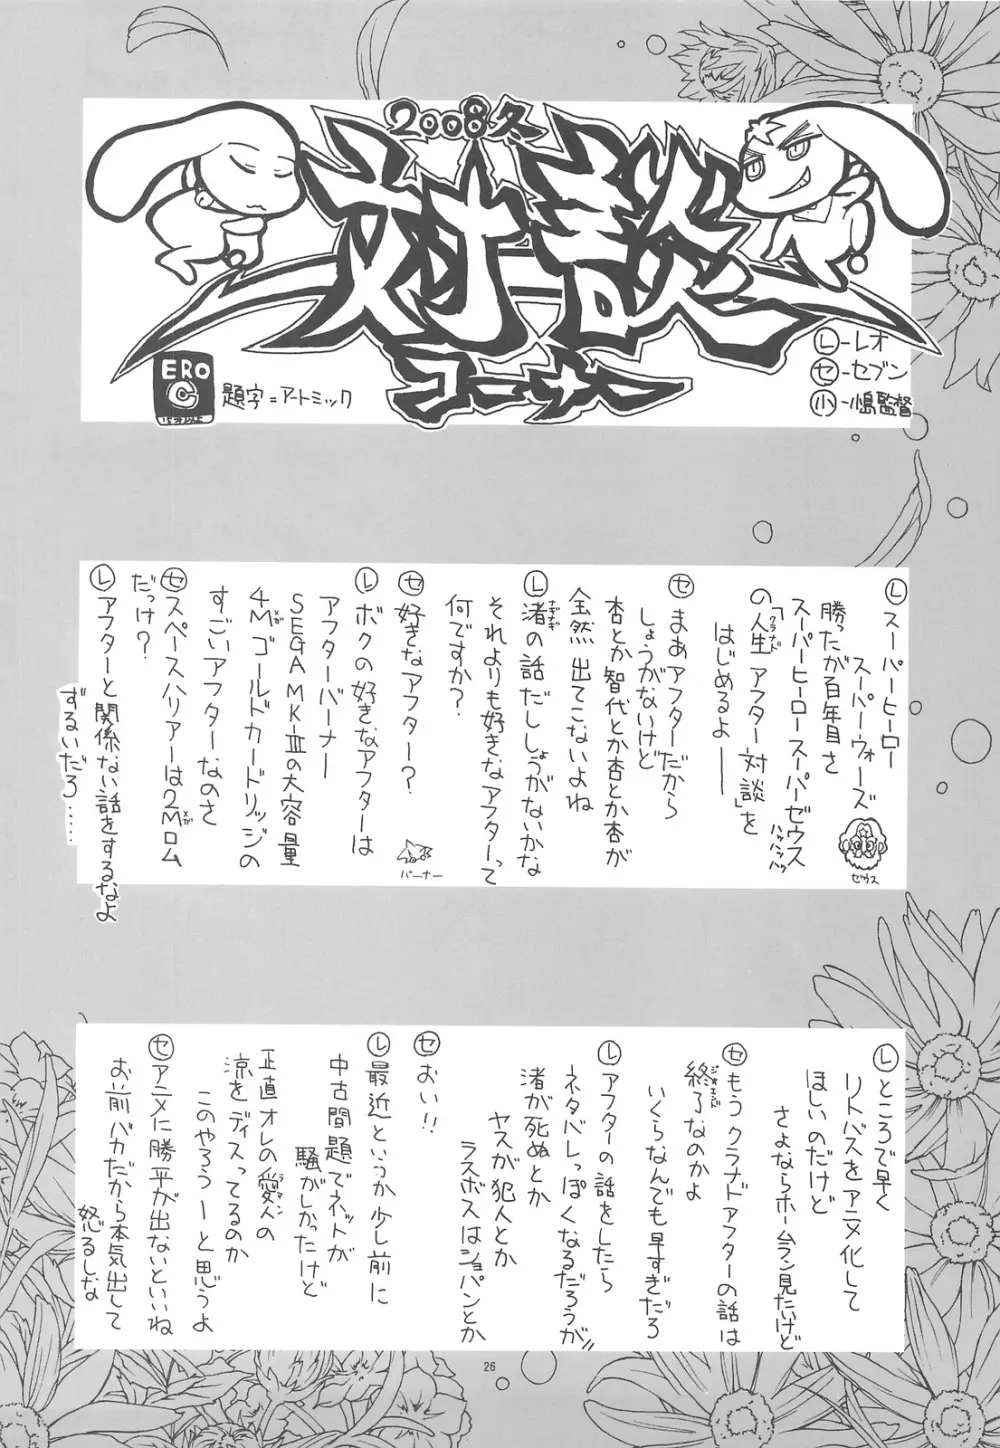 2008冬
対談
コーナー
ERO
C
題字=アートミック
Ⓛ-レオ
セ-セブン
小-小島監督
Ⓛスーパーヒーロー
スーパーウォーズ
勝ったが百年目さ
スーパーヒーロースーパーゼウス
ハッハッハッ
ゼウス
「人生
クラナド
アフター対談」を
はじめるよ――
セ まあアフターだから
しょうがないけど
杏とか智代とか杏とか杏が
全然出てこないよね
Ⓛ渚の話だししょうがないかな
なぎさ
それよりも好きなアフターって
何ですか?
セ 好きなアフター?
Ⓛボクの好きなアフターは
アフターバーナー
バーナー
SEGA MK-Ⅲの大容量
4Mゴールドカードリッジの
メガ
すごいアフターなのさ
セ スペースハリアーは2Mロム
メガ
だっけ?
Ⓛアフターと関係ない話をするなよ
ずるいだろ……
Ⓛところで早く
リトバスをアニメ化して
ほしいのだけど
さよならホームラン見たいけど
セ もうクラナドアフターの話は
終了なのかよ
いくらなんでも早すぎだろ
Ⓛアフターの話をしたら
ネタバレっぽくなるだろうが!!
渚が死ぬとか
ヤスが犯人とか
ラスボスはショパンとか
セ おい!!
Ⓛ最近というか少し前に
中古問題でネットが
騒がしかったけど
正直オレの愛人の
ラマン
涼をディスってるのか
このやろうーと思うよ
セ アニメに勝平が出ないといいね
お前バカだから本気出して
怒るしな
26